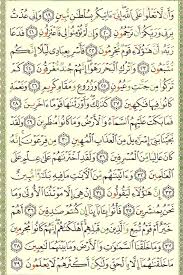 وَأَن لَّا تَعْلُوا۟ عَلَى ٱللَّهِ ۖ إِنِّىٓ ءَاتِيكُم بِسُلْطَـٰنٍ مُّبِينٍ ١٩ وَإِنِّى عُذْتُ
بِرَبِّى وَرَبِّكُمْ أَن تَرْجُمُونِ ٢٠ وَإِن لَّمْ تُؤْمِنُوا۟ لِى فَٱعْتَزِلُونِ ٢١ فَدَعَا
رَبَّهُۥٓ أَنَّ هَـٰٓؤُلَآءِ قَوْمٌ مُّجْرِمُونَ ٢٢ فَأَسْرِ بِعِبَادِى لَيْلًا إِنَّكُم
مُّتَّبَعُونَ ٢٣ وَٱتْرُكِ ٱلْبَحْرَ رَهْوًا ۖ إِنَّهُمْ جُندٌ مُّغْرَقُونَ ٢٤ كَمْ
تَرَكُوا۟ مِن جَنَّـٰتٍ وَعُيُونٍ ٢٥ وَزُرُوعٍ وَمَقَامٍ كَرِيمٍ ٢٦ وَنَعْمَةٍ
كَانُوا۟ فِيهَا فَـٰكِهِينَ ٢٧ كَذَٰلِكَ ۖ وَأَوْرَثْنَـٰهَا قَوْمًا ءَاخَرِينَ ٢٨
فَمَا بَكَتْ عَلَيْهِمُ ٱلسَّمَآءُ وَٱلْأَرْضُ وَمَا كَانُوا۟ مُنظَرِينَ ٢٩
وَلَقَدْ نَجَّيْنَا بَنِىٓ إِسْرَٰٓءِيلَ مِنَ ٱلْعَذَابِ ٱلْمُهِينِ ٣٠ مِن فِرْعَوْنَ ۚ إِنَّهُۥ
كَانَ عَالِيًا مِّنَ ٱلْمُسْرِفِينَ ٣١ وَلَقَدِ ٱخْتَرْنَـٰهُمْ عَلَىٰ عِلْمٍ عَلَى
ٱلْعَـٰلَمِينَ ٣٢ وَءَاتَيْنَـٰهُم مِّنَ ٱلْـَٔايَـٰتِ مَا فِيهِ بَلَـٰٓؤٌا۟ مُّبِينٌ ٣٣
إِنَّ هَـٰٓؤُلَآءِ لَيَقُولُونَ ٣٤ إِنْ هِىَ إِلَّا مَوْتَتُنَا ٱلْأُولَىٰ وَمَا
نَحْنُ بِمُنشَرِينَ ٣٥ فَأْتُوا۟ بِـَٔابَآئِنَآ إِن كُنتُمْ صَـٰدِقِينَ ٣٦ أَهُمْ
خَيْرٌ أَمْ قَوْمُ تُبَّعٍ وَٱلَّذِينَ مِن قَبْلِهِمْ ۚ أَهْلَكْنَـٰهُمْ ۖ إِنَّهُمْ كَانُوا۟ مُجْرِمِينَ ٣٧
وَمَا خَلَقْنَا ٱلسَّمَـٰوَٰتِ وَٱلْأَرْضَ وَمَا بَيْنَهُمَا لَـٰعِبِينَ ٣٨
مَا خَلَقْنَـٰهُمَآ إِلَّا بِٱلْحَقِّ وَلَـٰكِنَّ أَكْثَرَهُمْ لَا يَعْلَمُونَ ٣٩